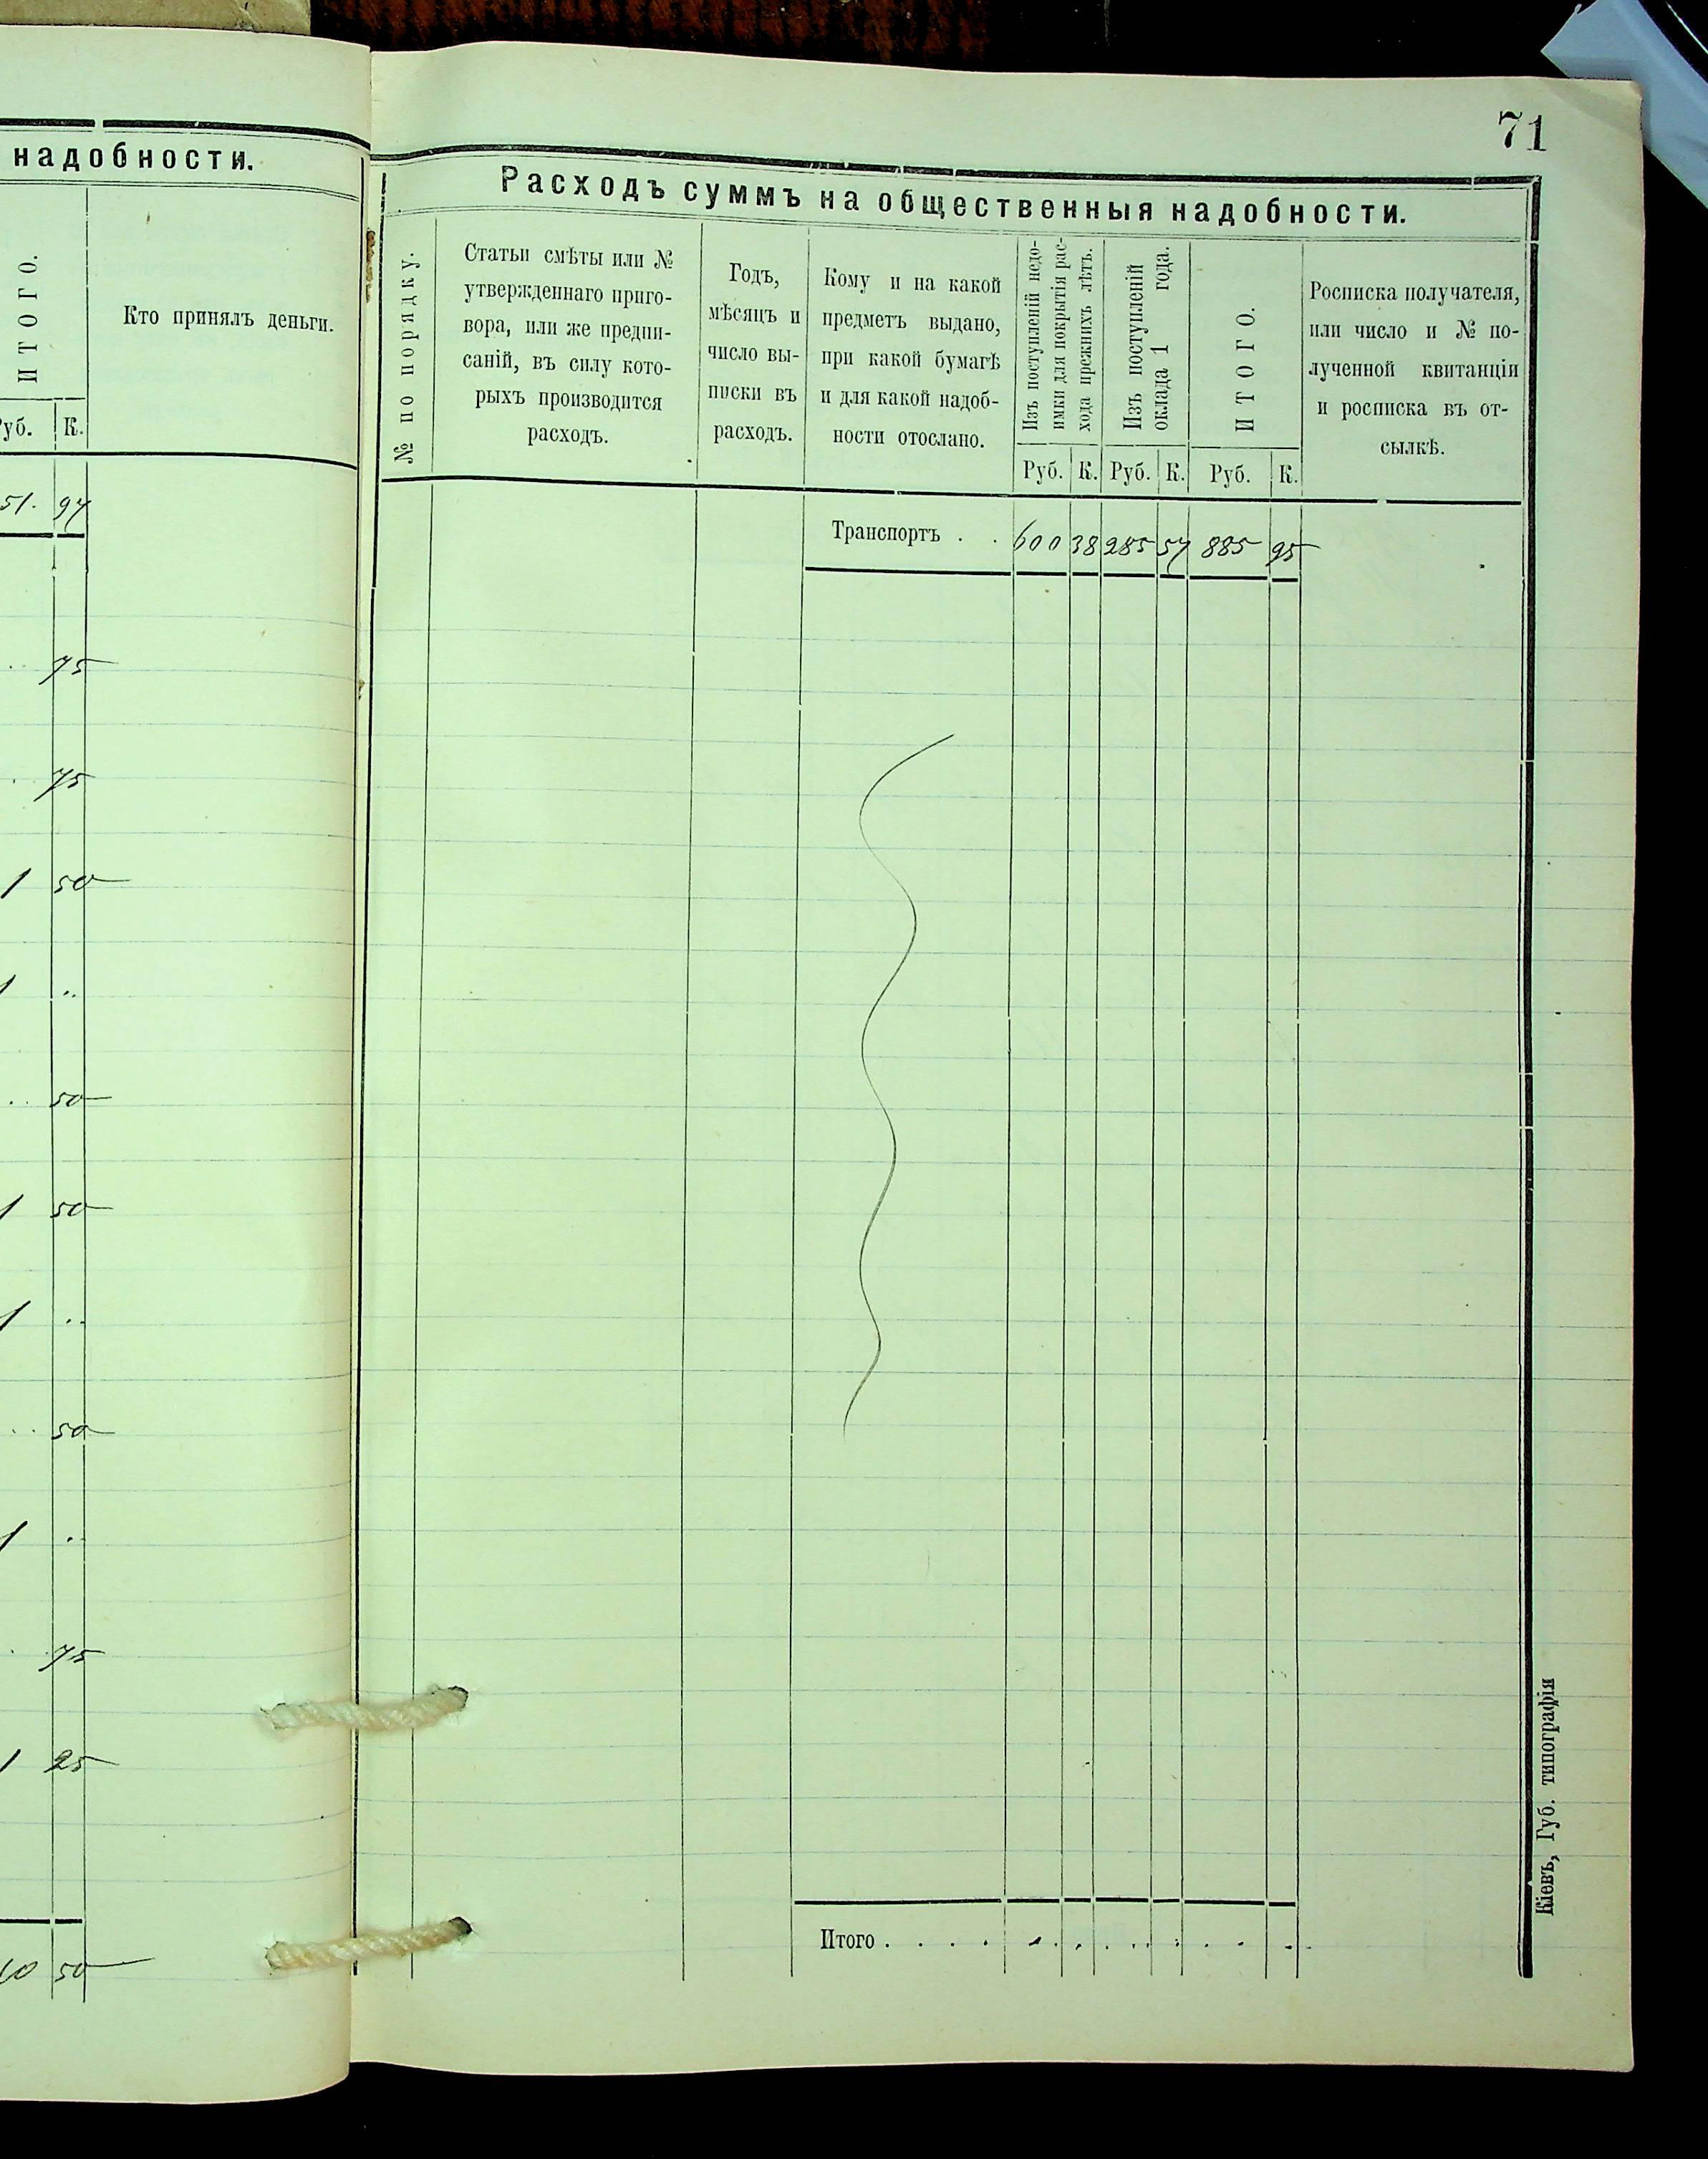 надобности.
ИТОГО.
Кто принялъ деньги.
уб. К.
51. 97
75
75
1 50
1 ..
50
1 50
1 ..
50
1 ..
75
1 25
10 50
71
Расходъ суммъ на общественныя надобности.
№ по порядку.
Статьи смѣты или №
утвержденнаго приго-
вора, или же предпи-
саній, въ силу кото-
рыхъ производится
расходъ.
Годъ,
мѣсяцъ и
число вы-
писки въ
расходъ.
Кому и на какой
предметъ выдано,
при какой бумагѣ
и для какой надоб-
ности отослано.
Изъ поступленій недо-
имки для покрытія рас-
хода прежнихъ лѣтъ.
Изъ поступленій
оклада 1 года.
ИТОГО.
Росписка получателя,
или число и № по-
лученной квитанціи
и росписка въ от-
сылкѣ.
Руб. К. Руб. К. Руб. К.
Транспортъ . . 600 38 285 57 885 95
Итого . . . . .
Кіевъ, Губ. типографія